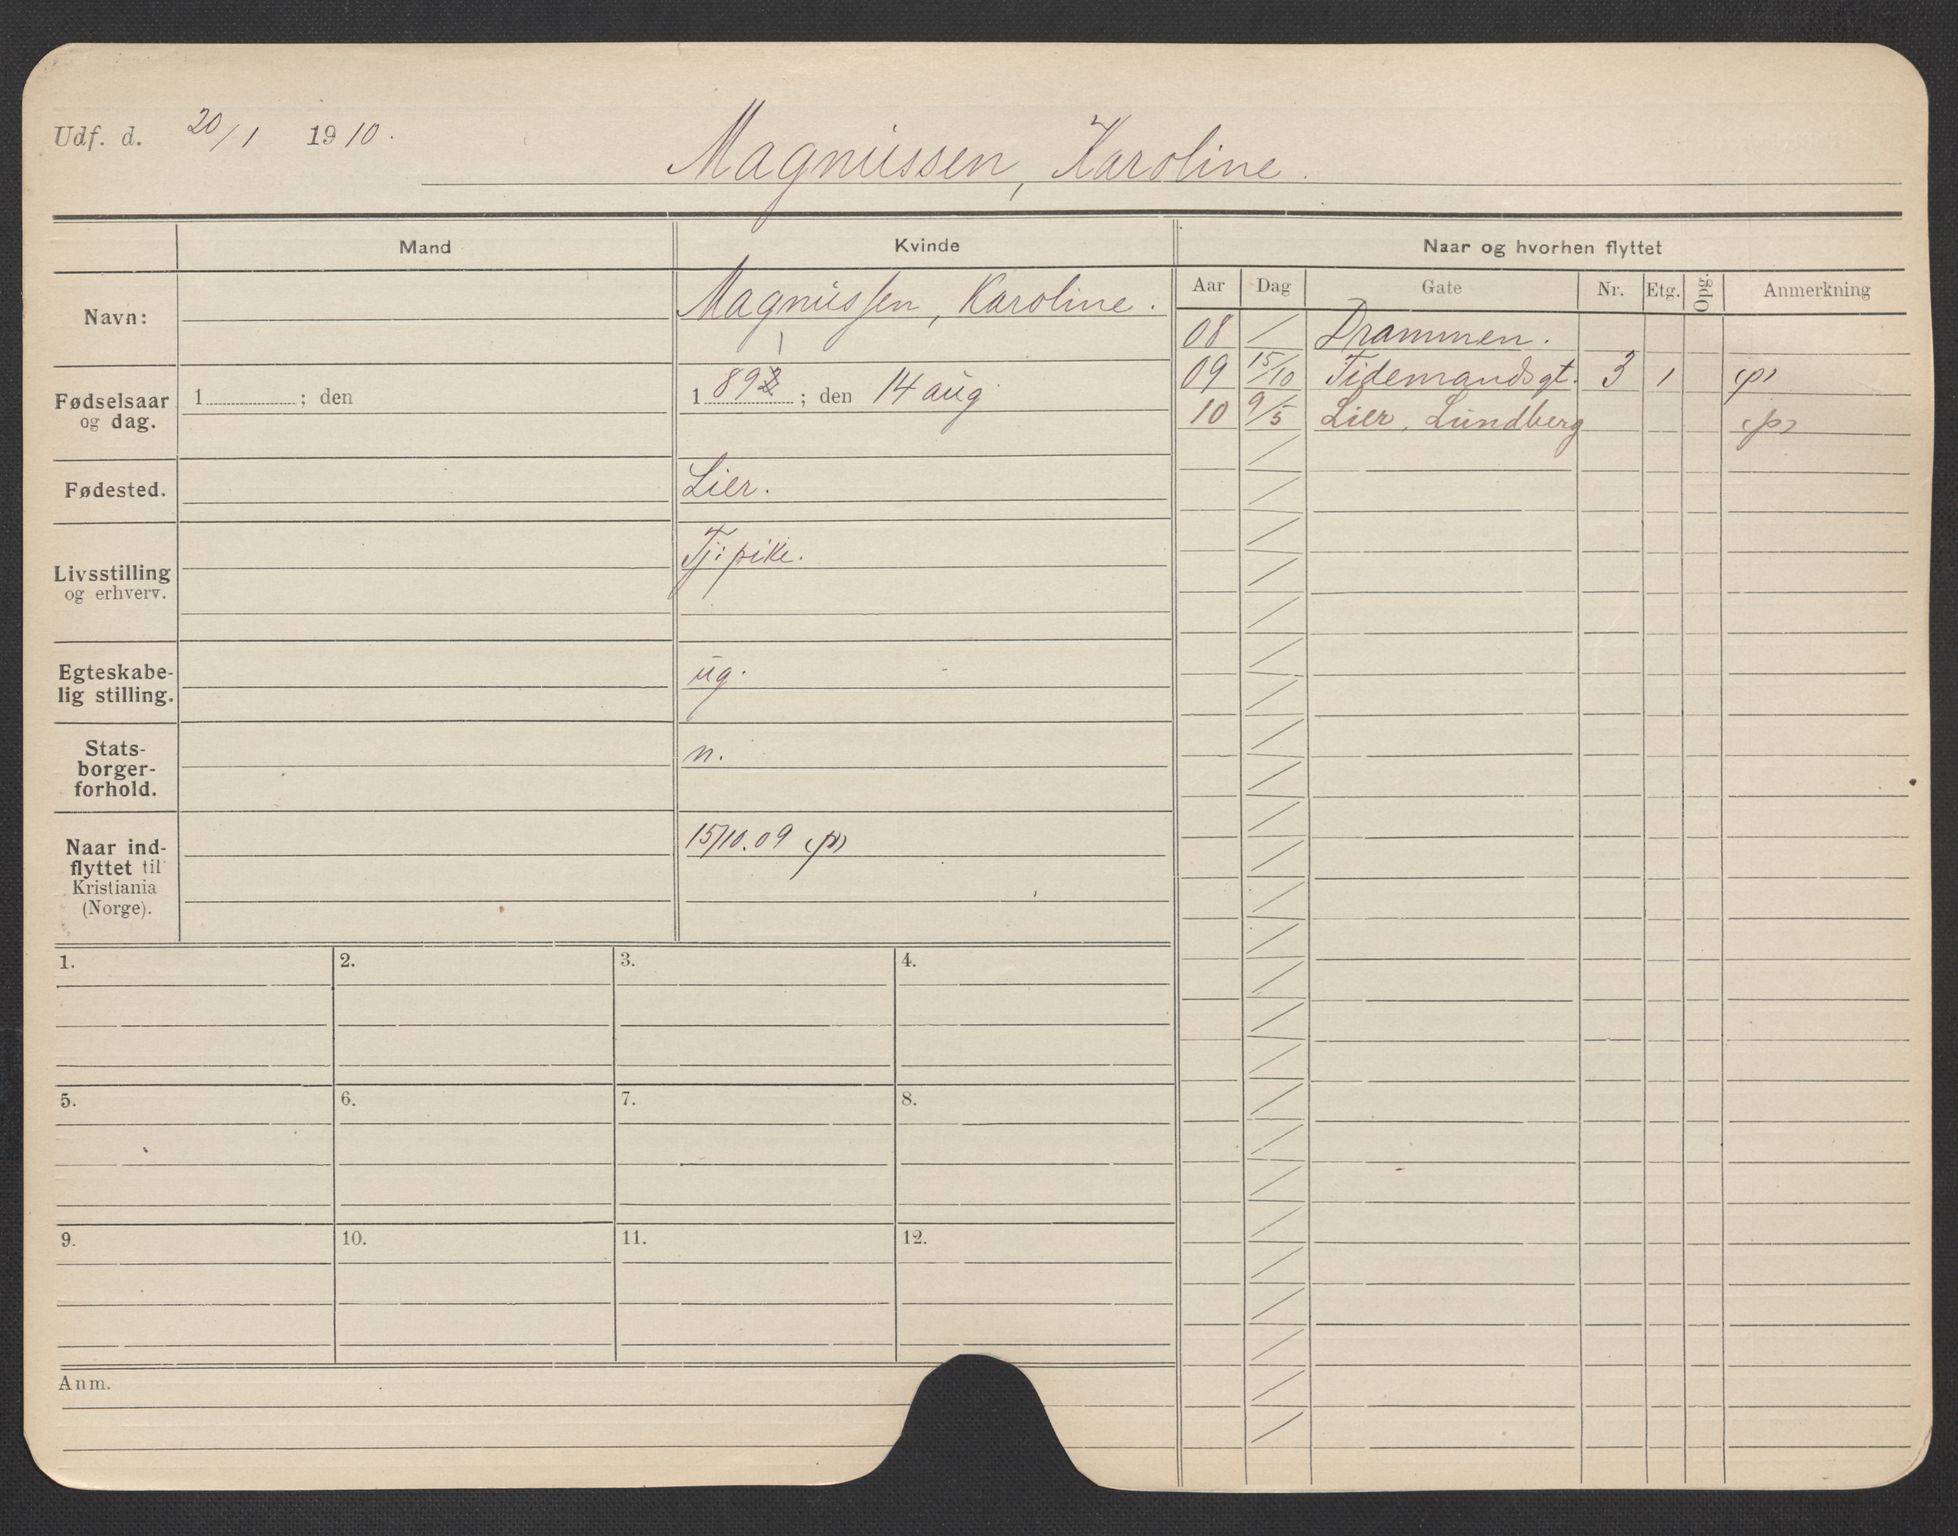 Udf. d. 20/1 1910.
Magnussen, Karoline.
Mand
Kvinde
Naar og hvorhen flyttet
Aar Dag Gate Nr. Etg. Opg. Anmerkning
Navn:
Magnussen, Karoline.
08 / Drammen.
09 15/10 Tidemandsgt. 3 1 (p)
10 9/5 Lier, Lundberg (p)
Fødselsaar
og dag.
1 ; den
1
1892 ; den 14 aug.
Fødested.
Lier.
Livsstilling
og erhverv.
Tj: pike.
Egteskabe-
lig stilling.
ug.
Stats-
borger-
forhold.
n.
Naar ind-
flyttet til
Kristiania
(Norge).
15/10.09 (p)
1. 2. 3. 4.
5. 6. 7. 8.
9. 10. 11. 12.
Anm.